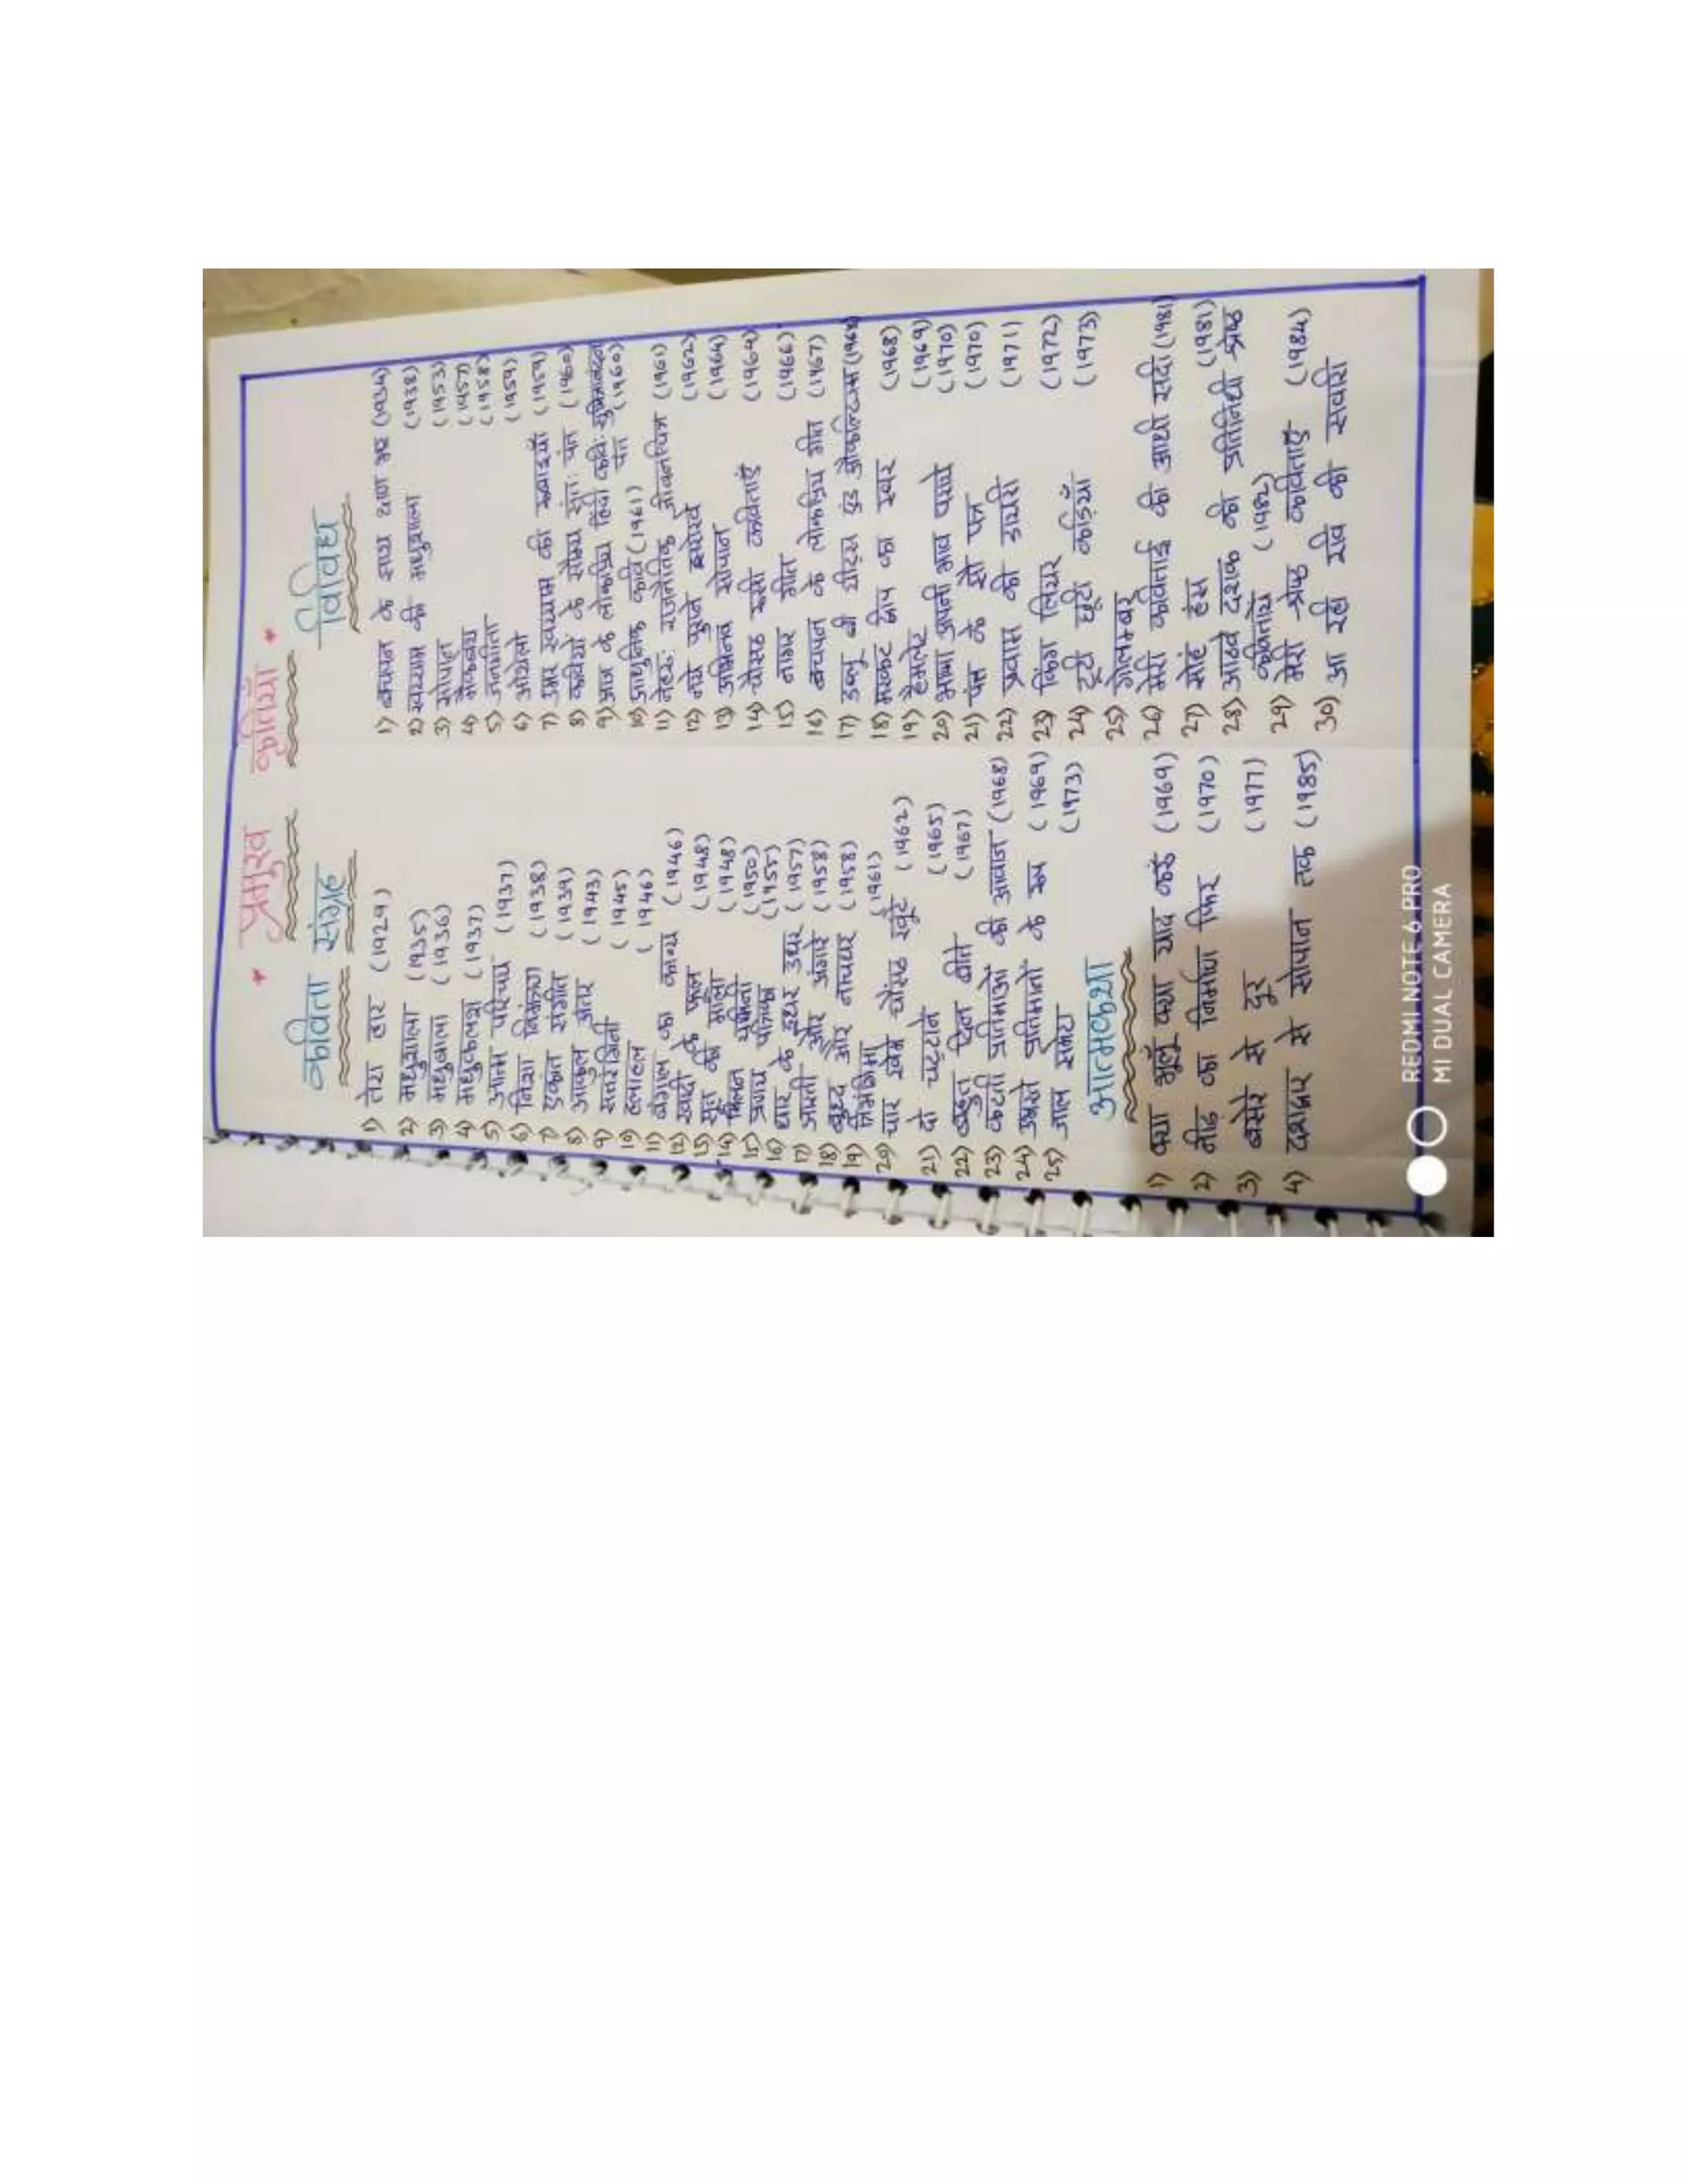 * प्रमुख कृतियाँ *
कविता संग्रह
1) तेरा हार (1929)
2) मधुशाला (1935)
3) मधुबाला (1936)
4) मधुकलश (1937)
5) आत्म परिचय (1937)
6) निशा निमंत्रण (1938)
7) एकांत संगीत (1939)
8) आकुल अंतर (1943)
9) सतरंगिनी (1945)
10) हलाहल (1946)
11) बंगाल का काव्य (1946)
12) खादी के फूल (1948)
13) सूत की माला (1948)
14) मिलन यामिनी (1950)
15) प्रणय पत्रिका (1955)
16) धार के इधर उधर (1957)
17) आरती और अंगारे (1958)
18) बुध्द और नाचघर (1958)
19) त्रिभंगिमा (1961)
20) चार खेमे चौंसठ खूंटे (1962)
21) दो चट्टाने (1965)
22) बहुत दिन बीते (1967)
23) कटती प्रतिमाओं की आवाज (1968)
24) उभरते प्रतिमानों के रूप (1969)
25) जाल समेटा (1973)
आत्मकथा
1) क्या भूलूँ क्या याद करूँ (1969)
2) नीड का निर्माण फिर (1970)
3) बसेरे से दूर (1977)
4) दशद्वार से सोपान तक (1985)
विविध
1) बच्चन के साथ क्षण भर (1934)
2) खय्याम की मधुशाला (1938)
3) सोपान (1953)
4) मैकबेथ (1957)
5) जनगीता (1958)
6) ओथेलो (1959)
7) उमर खय्याम की रुबाइयाँ (1959)
8) कवियों के सौम्य संत: पंत (1960)
9) आज के लोकप्रिय हिंदी कवि: सुमित्रानंदन
पंत (1960)
10) आधुनिक कवि (1961)
11) नेहरू: राजनैतिक जीवनचित्र (1961)
12) नये पुराने झरोखे (1962)
13) अभिनव सोपान (1964)
14) चौसठ रूसी कविताएँ (1964)
15) नागर गीत (1966)
16) बचपन के लोकप्रिय गीत (1967)
17) डब्लू बी यीट्स एंड औकल्टिज्म (1968)
18) मरकट द्वीप का स्वर (1968)
19) हैमलेट (1969)
20) भाषा अपनी भाव पराये (1970)
21) पंत के सौ पत्र (1970)
22) प्रवास की डायरी (1971)
23) किंग लियर (1972)
24) टूटी छूटी कड़ियाँ (1973)
25) गोलम्बर
26) मेरी कविताई की आधी सदी (1981)
27) सोहं हंस (1981)
28) आठवे दशक की प्रतिनिधी श्रेष्ठ
कवितायें (1982)
29) मेरी श्रेष्ठ कविताएँ (1984)
30) आ रही रवि की सवारी
REDMI NOTE 6 PRO
MI DUAL CAMERA